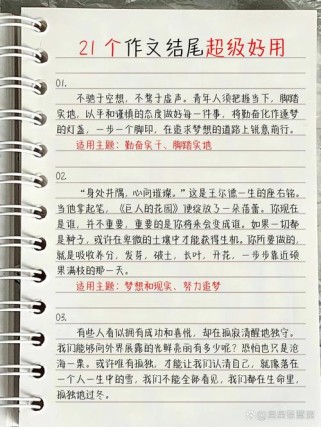 21个作文结尾超级好用
01.
不驰于空想，不骛于虚声。青年人须把握当下，脚踏
实地，以平和谨慎的态度做好每一件事，将勤奋化作逐梦
的灯盏，一步一个脚印，在追求梦想的道路上锐意前行。
适用主题：勤奋实干、脚踏实地
02.
“身处井隅，心向璀璨。”这是王尔德一生的座右铭。
当他拿起笔，《巨人的花园》便绽放了一朵蓓蕾。你现在
是谁，并不重要，重要的是你将来会变成谁。如果一切都
是种子，或许在卑微的土壤中才能获得生机。你所要做的，
就是吸收养分，发芽，破土，长叶，开花，一步步靠近硕
果满枝的那一天。
适用主题：梦想和现实、努力追梦
03.
有些人看似拥有成功和喜悦，却在孤寂清醒地独守。
我们能够向外界展露的光鲜亮丽有多少呢？恐怕也只是沧
海一粟。或许唯有孤独，才能让我们认清自己，就像落在
一个人一生中的雪，我们不能全部看见，我们都在生命里，
孤独地过冬。